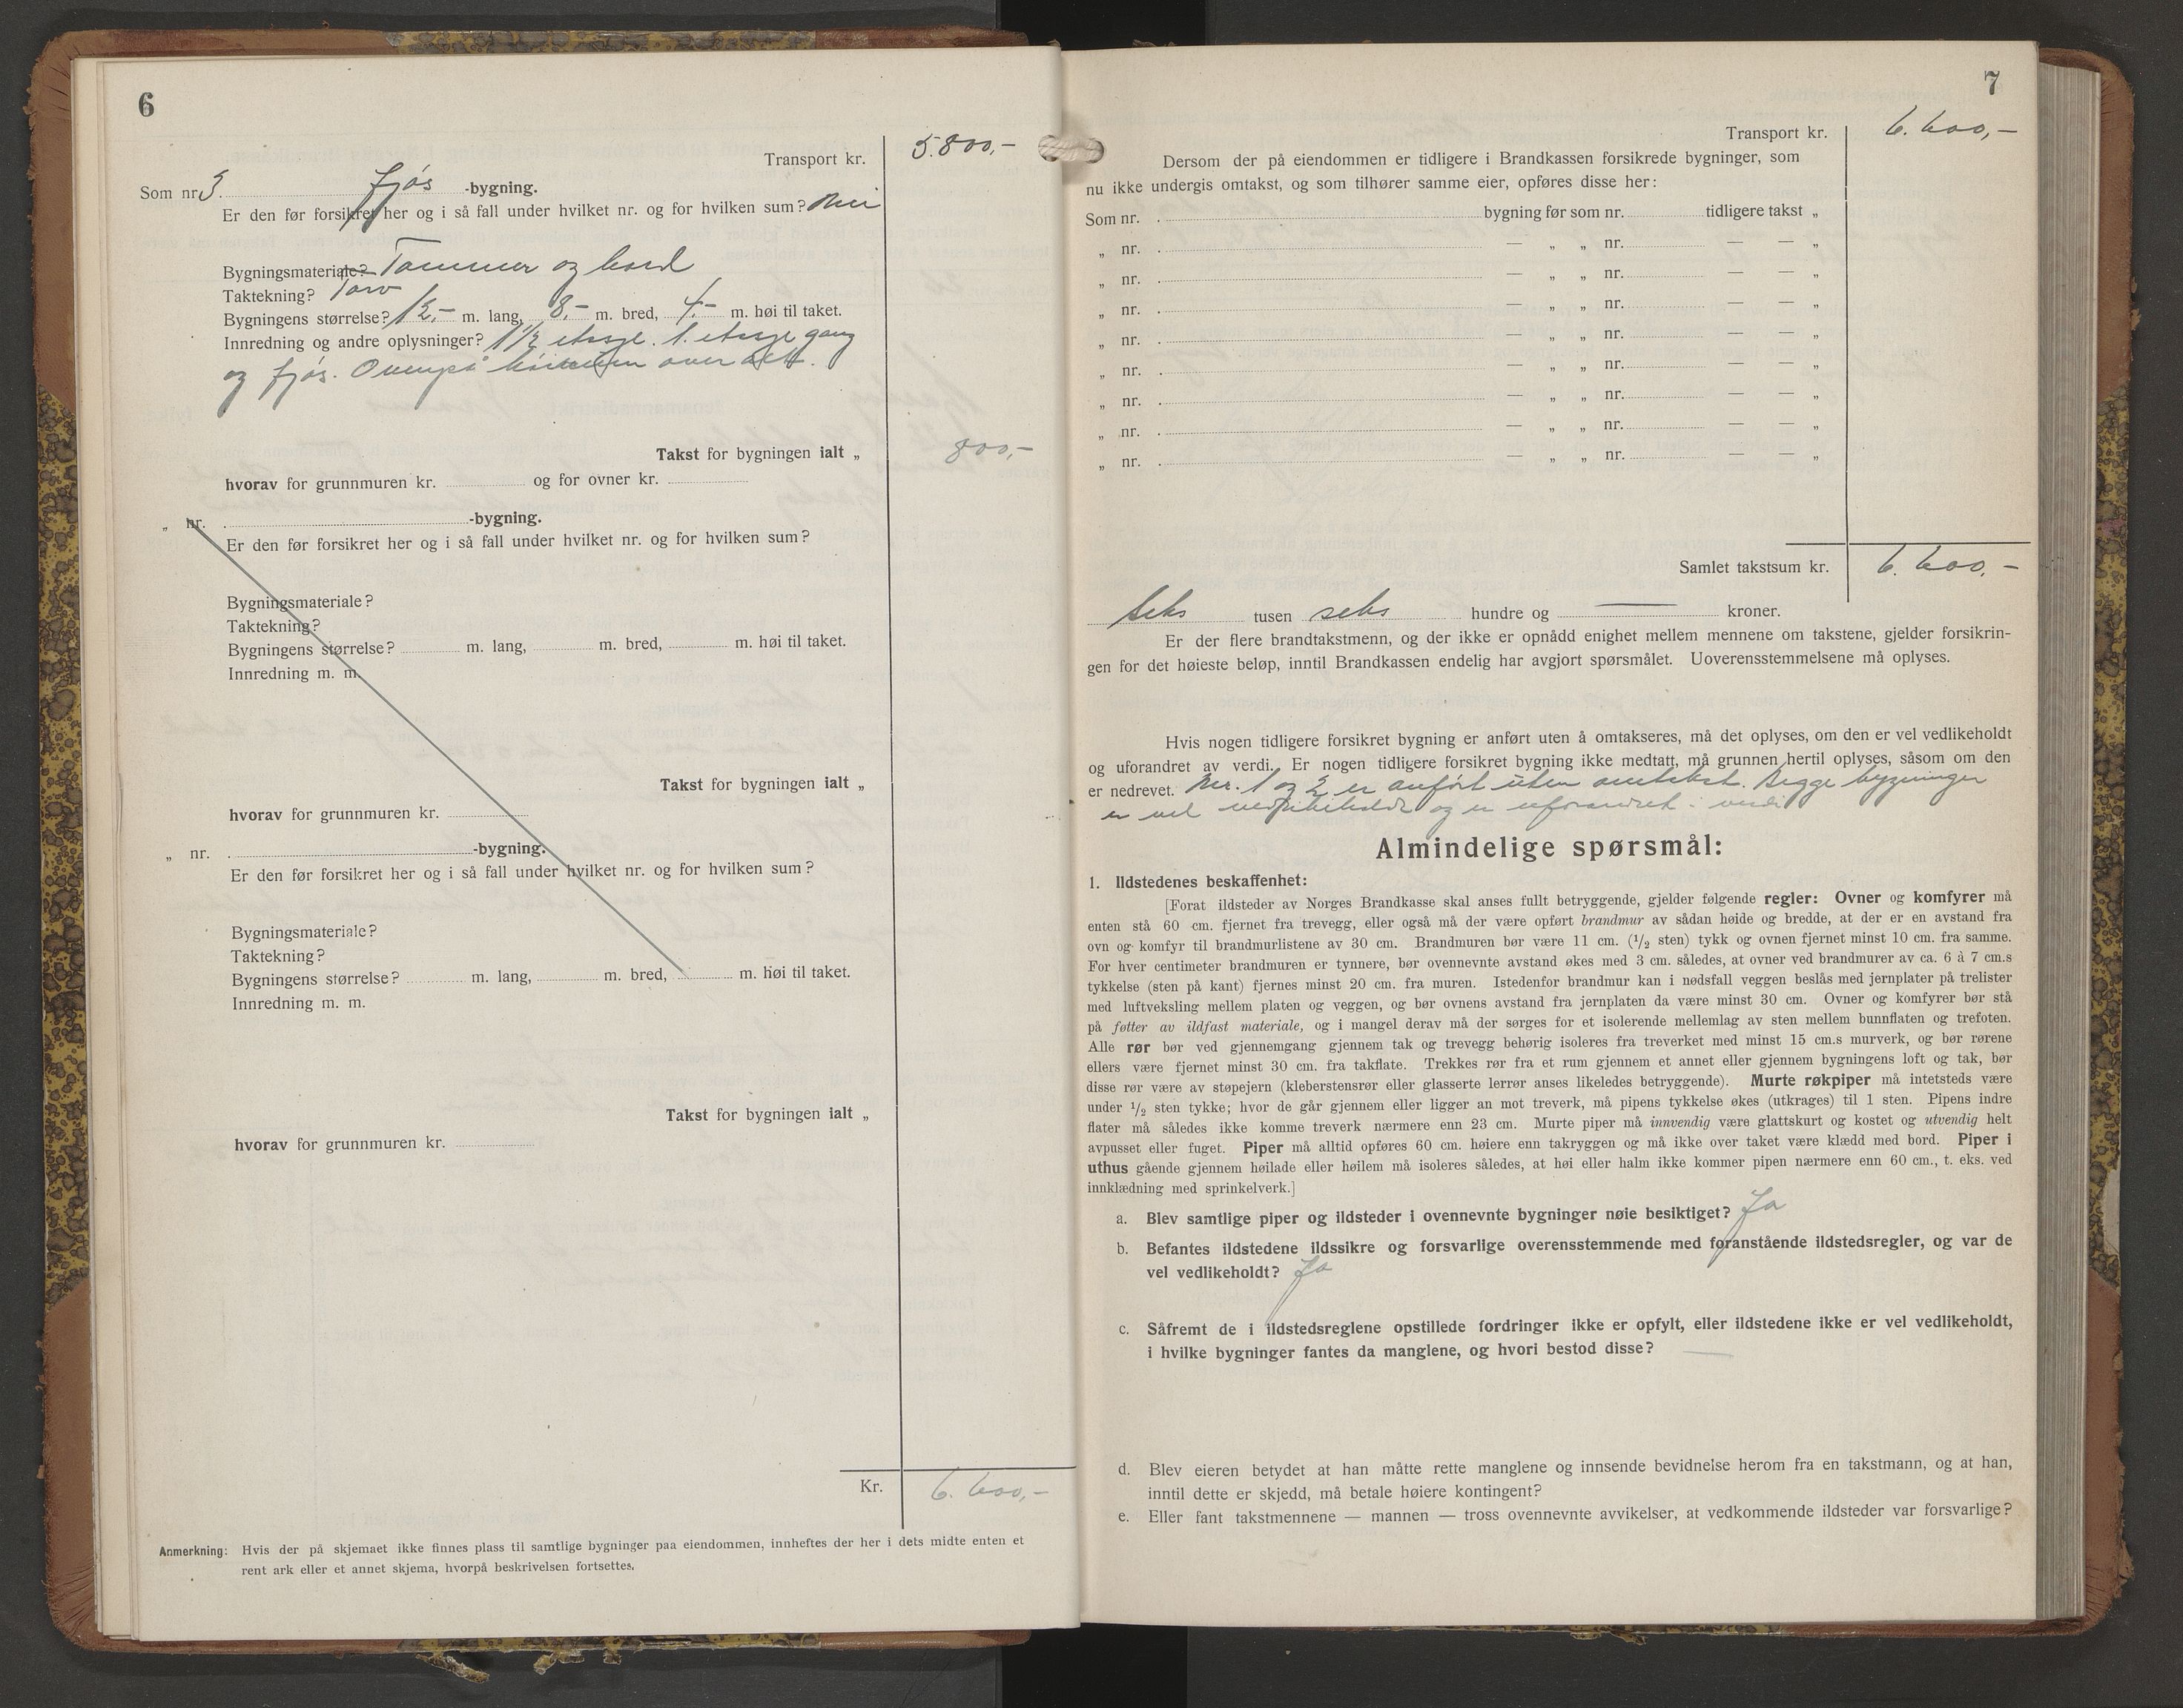 6
Transport kr. 5.800,-
Som nr 3. fjós -bygning.
Er den før forsikret her og i så fall under hvilket nr. og for hvilken sum? Nei
Bygningsmateriale? Tømmer og bord
Taktekning? Torv
Bygningens størrelse? 12,- m. lang, 8,- m. bred, 4,- m. høi til taket.
Innredning og andre oplysninger? 1 1/2 etasje. 1. etasje gang
og fjós. Ovenpå over alt.
Takst for bygningen ialt „ 800,-
hvorav for grunnmuren kr. og for ovner kr.
„ nr. -bygning.
Er den før forsikret her og i så fall under hvilket nr. og for hvilken sum?
Bygningsmateriale?
Taktekning?
Bygningens størrelse? m. lang, m. bred, m. høi til taket.
Innredning m. m.
Takst for bygningen ialt „
hvorav for grunnmuren kr.
„ nr. -bygning.
Er den før forsikret her og i så fall under hvilket nr. og for hvilken sum?
Bygningsmateriale?
Taktekning?
Bygningens størrelse? m. lang, m. bred, m. høi til taket.
Innredning m. m.
Takst for bygningen ialt „
hvorav for grunnmuren kr.
Kr. 6.600,-
Anmerkning: Hvis der på skjemaet ikke finnes plass til samtlige bygninger paa eiendommen, innheftes der her i dets midte enten et
rent ark eller et annet skjema, hvorpå beskrivelsen fortsettes.
7
Transport kr. 6.600,-
Dersom der på eiendommen er tidligere i Brandkassen forsikrede bygninger, som
nu ikke undergis omtakst, og som tilhører samme eier, opføres disse her:
Som nr. . bygning før som nr. tidligere takst „
„ nr. . — „ „ nr. — — „
„ nr. . — „ „ nr. — — „
„ nr. . — „ „ nr. — — „
„ nr. . — „ „ nr. — — „
„ nr. . — „ „ nr. — — „
„ nr. . — „ „ nr. — — „
„ nr. . — „ „ nr. — — „
„ nr. . — „ „ nr. — — „
Samlet takstsum kr. 6.600,-
Seks tusen seks hundre og — kroner.
Er der flere brandtakstmenn, og der ikke er opnådd enighet mellem mennene om takstene, gjelder forsikrin-
gen for det høieste beløp, inntil Brandkassen endelig har avgjort spørsmålet. Uoverensstemmelsene må oplyses.
Hvis nogen tidligere forsikret bygning er anført uten å omtakseres, må det oplyses, om den er vel vedlikeholdt
og uforandret av verdi. Er nogen tidligere forsikret bygning ikke medtatt, må grunnen hertil oplyses, såsom om den
er nedrevet. Nr. 1 og 2 er anført uten omtakst. Begge bygninger
er vel vedlikeholdt og er uforandret i verdi
Almindelige spørsmål:
1. Ildstedenes beskaffenhet:
[Forat ildsteder av Norges Brandkasse skal anses fullt betryggende, gjelder følgende regler: Ovner og komfyrer må
enten stå 60 cm. fjernet fra trevegg, eller også må der være opført brandmur av sådan høide og bredde, at der er en avstand fra
ovn og komfyr til brandmurlistene av 30 cm. Brandmuren bør være 11 cm. (1/2 sten) tykk og ovnen fjernet minst 10 cm. fra samme.
For hver centimeter brandmuren er tynnere, bør ovennevnte avstand økes med 3 cm. således, at ovner ved brandmurer av ca. 6 à 7 cm.s
tykkelse (sten på kant) fjernes minst 20 cm. fra muren. Istedenfor brandmur kan i nødsfall veggen beslås med jernplater på trelister
med luftveksling mellem platen og veggen, og bør ovnens avstand fra jernplaten da være minst 30 cm. Ovner og komfyrer bør stå
på føtter av ildfast materiale, og i mangel derav må der sørges for et isolerende mellemlag av sten mellem bunnflaten og trefoten.
Alle rør bør ved gjennemgang gjennem tak og trevegg behørig isoleres fra treverket med minst 15 cm.s murverk, og bør rørene
ellers være fjernet minst 30 cm. fra takflate. Trekkes rør fra et rum gjennem et annet eller gjennem bygningens loft og tak, bør
disse rør være av støpejern (kleberstensrør eller glasserte lerrør anses likeledes betryggende). Murte røkpiper må intetsteds være
under 1/2 sten tykke; hvor de går gjennem eller ligger an mot treverk, må pipens tykkelse økes (utkrages) til 1 sten. Pipens indre
flater må således ikke komme treverk nærmere enn 23 cm. Murte piper må innvendig være glattskurt og kostet og utvendig helt
avpusset eller fuget. Piper må alltid opføres 60 cm. høiere enn takryggen og må ikke over taket være klædd med bord. Piper i
uthus gående gjennem høilade eller høilem må isoleres således, at høi eller halm ikke kommer pipen nærmere enn 60 cm., t. eks. ved
innklædning med sprinkelverk.]
a. Blev samtlige piper og ildsteder i ovennevnte bygninger nøie besiktiget? Ja
b. Befantes ildstedene ildssikre og forsvarlige overensstemmende med foranstående ildstedsregler, og var de
vel vedlikeholdt? Ja
c. Såfremt de i ildstedsreglene opstillede fordringer ikke er opfylt, eller ildstedene ikke er vel vedlikeholdt,
i hvilke bygninger fantes da manglene, og hvori bestod disse? —
d. Blev eieren betydet at han måtte rette manglene og innsende bevidnelse herom fra en takstmann, og at han,
inntil dette er skjedd, må betale høiere kontingent?
e. Eller fant takstmennene — mannen — tross ovennevnte avvikelser, at vedkommende ildsteder var forsvarlige?